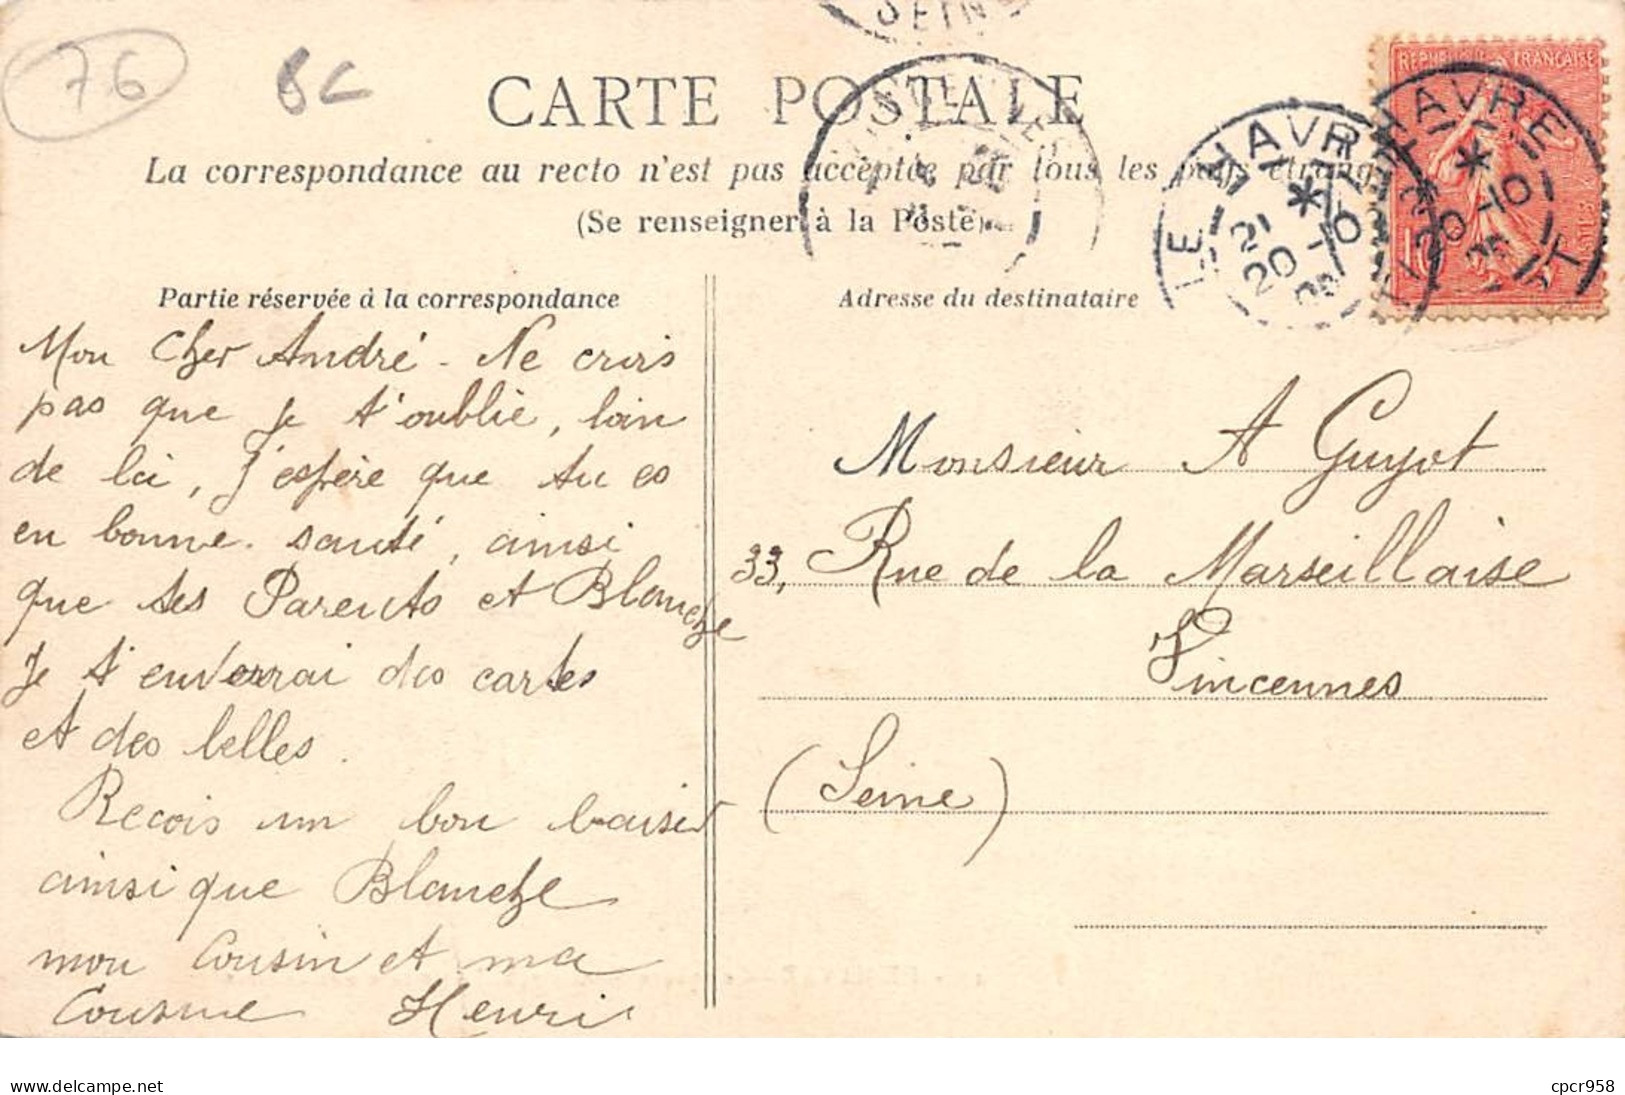 76
BC
SEINE
CARTE POSTALE
La correspondance au recto n'est pas acceptée par tous les pays étrangers
(Se renseigner à la Poste)
VINCENNES
LE HAVRE
21
20-10
HAVRE
20-10
REPUBLIQUE FRANÇAISE
10
POSTES
Partie réservée à la correspondance
Adresse du destinataire
Mon Cher André - Ne crois
pas que je t'oublie, loin
de là, J'espère que tu es
en bonne santé, ainsi
que tes Parents et Blanche
Je t'enverrai des cartes
et des belles.
Recois un bon baiser
ainsi que Blanche
mon Cousin et ma
Cousine Henri
Monsieur A Guyot
33, Rue de la Marseillaise
Vincennes
(Seine)
www.delcampe.net
cpcr958